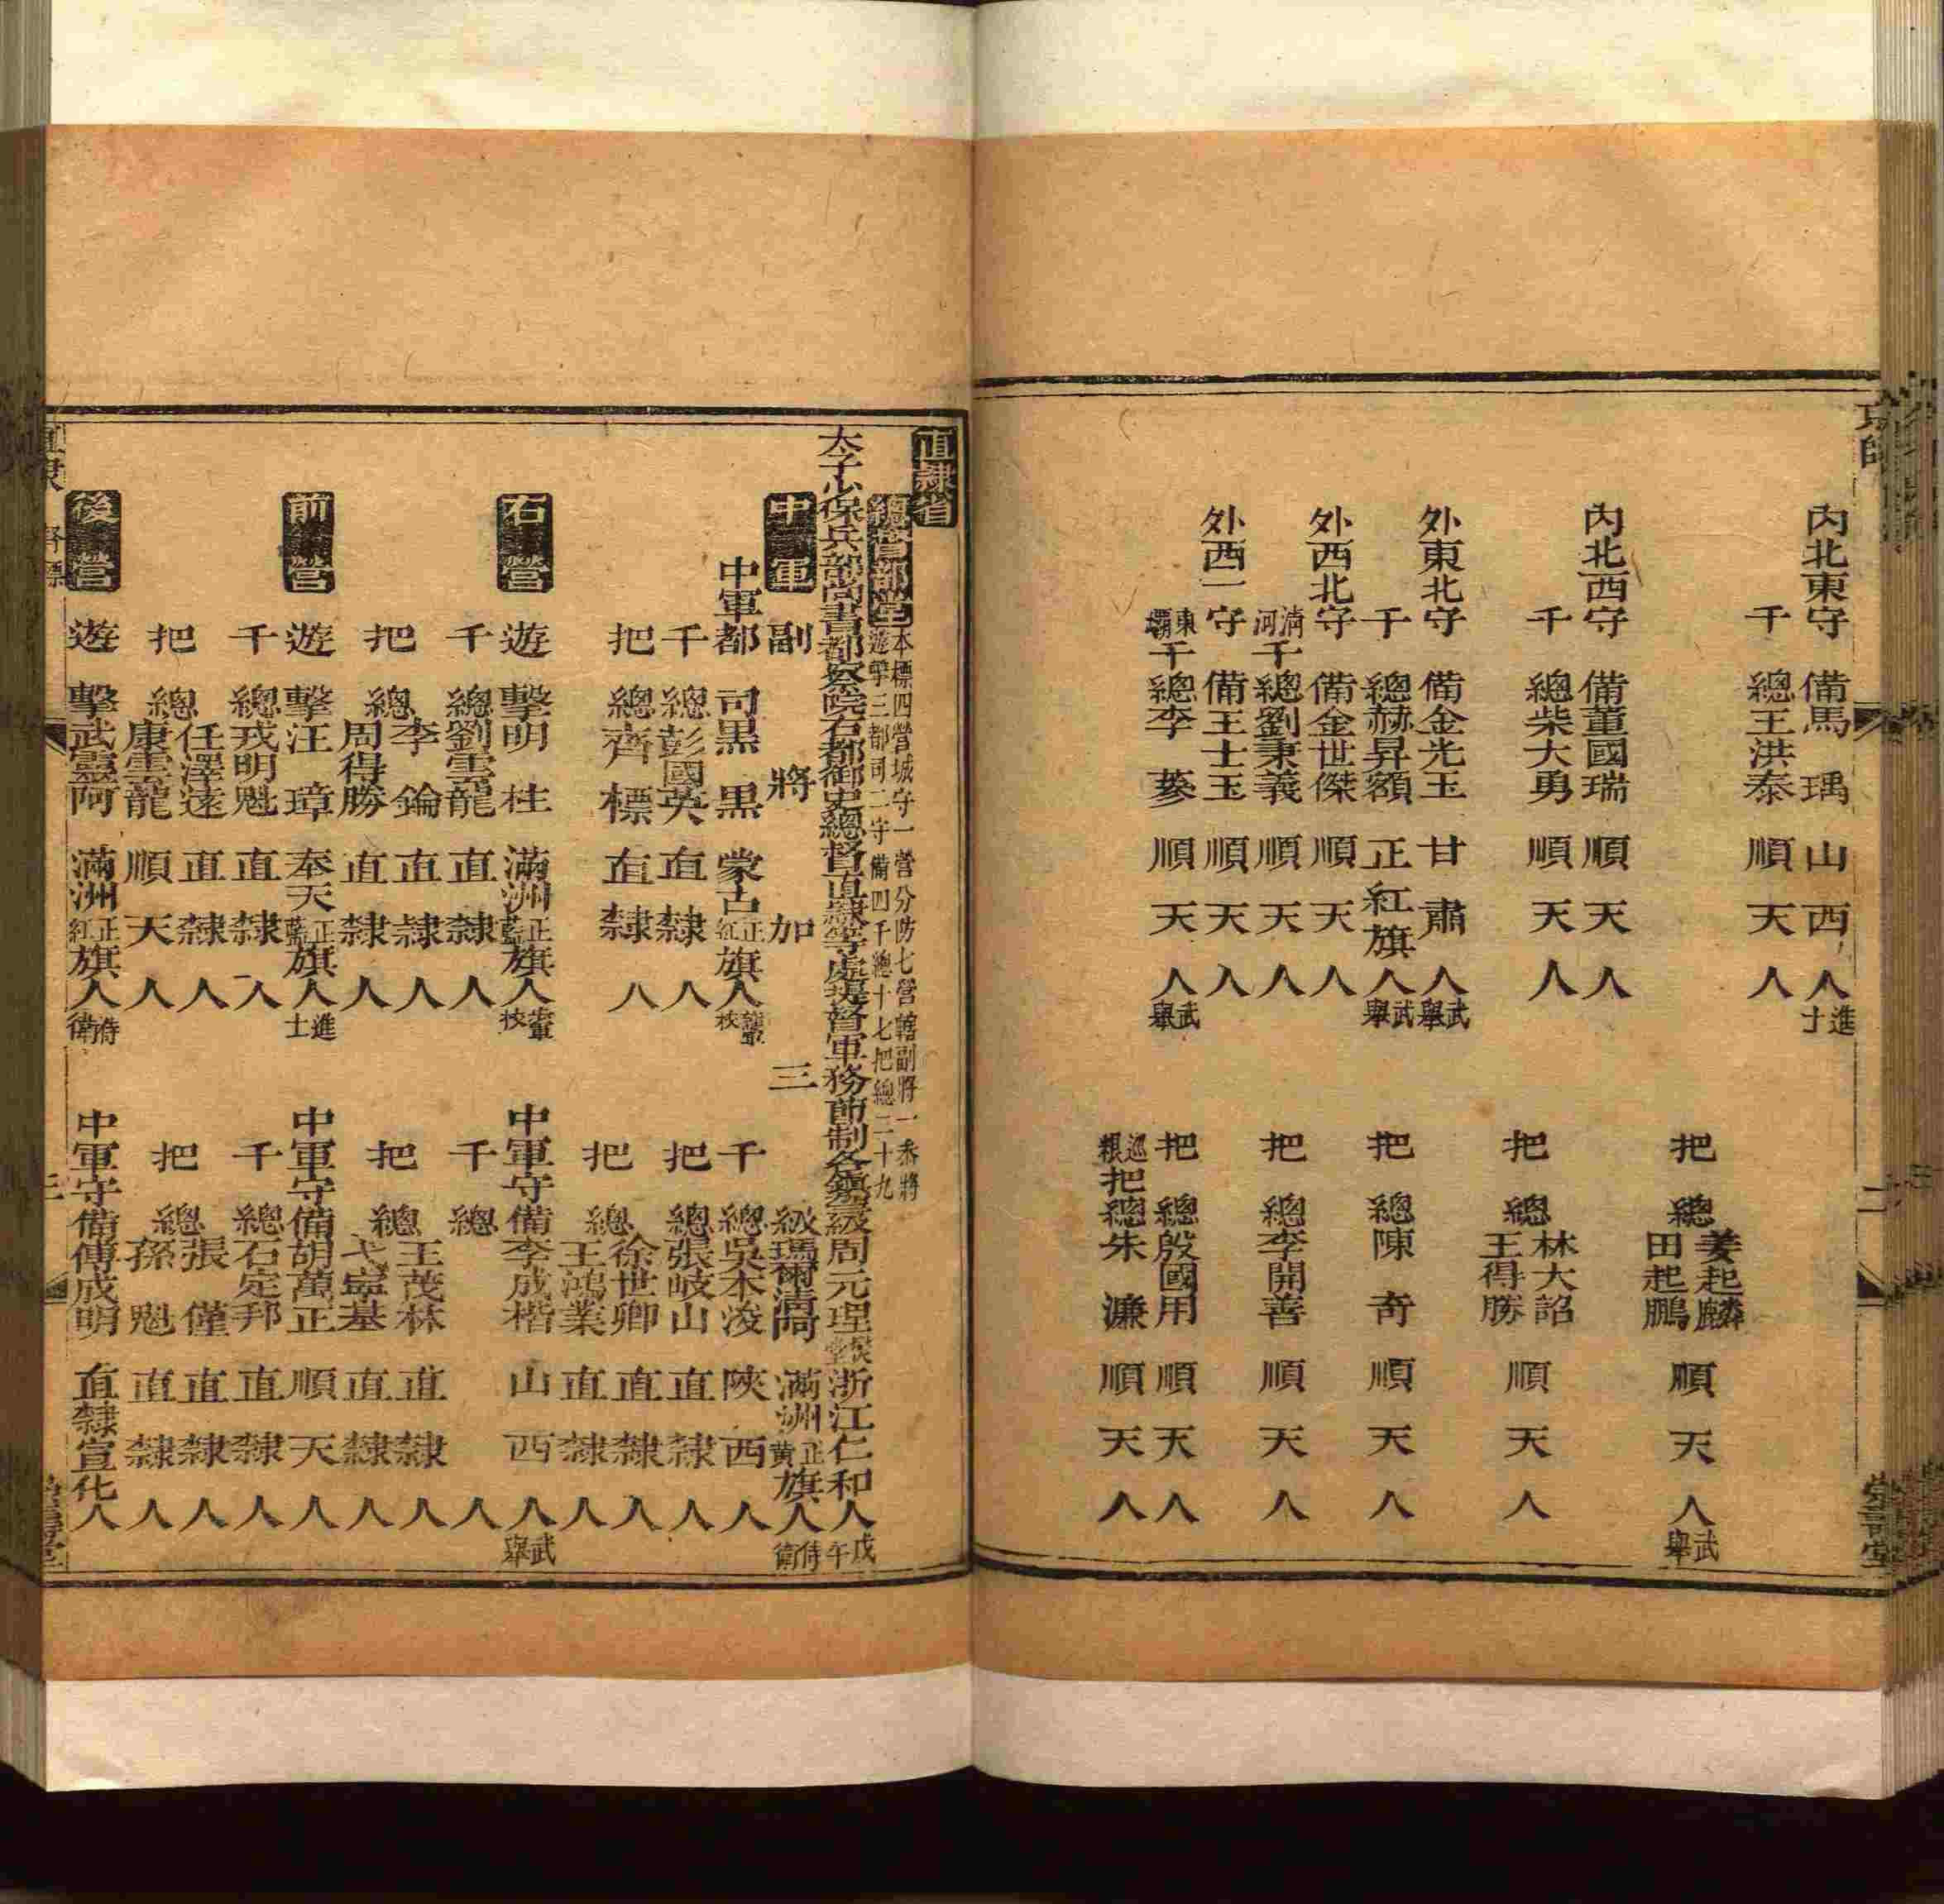 京師
內北東守備馬 瑀山西人進士
千總王洪泰順天人
把總姜起麟
田起鵬順天人武舉
內北西守備董國瑞順天人
千總柴大勇順天人
把總林大詔
王得勝順天人
外東北守備金光玉甘肅人武舉
千總赫昇額正紅旗人武舉
把總陳 奇順天人
外西北守備金世傑順天人
淸河千總劉秉義順天人
把總李開善順天人
外西一守備王士玉順天人
東壩千總李 蔘順天人武舉
把總殷國用順天人
巡糧把總朱 濂順天人
二
榮壽堂
直隸省
總督部堂本標四營城守一營分防七營轄副將一叅將
遊擊三都司二守備四千總十七把總二十九
太子少保兵部尚書都察院右都御史總督直隸等處提督軍務節制各鎮加三級周元理浙江仁和人戊午
中軍副將加三級瑪爾淸阿滿洲正黃旗人侍衛
中軍都司黑 黑蒙古正紅旗人
千總吳本浚陝西人
千總彭國英直隸人
把總張岐山直隸人
把總齊 標直隸人
把總徐世卿直隸人
王鴻業直隸人
右營遊擊明 桂滿洲正藍旗人
中軍守備李成楷山西人武舉
千總劉雲龍直隸人
千總 人
把總李 錀直隸人
周得勝直隸人
把總王茂林直隸人
弋寧基直隸人
前營遊擊汪 璋奉天正藍旗人進士
中軍守備胡萬正順天人
千總戎明魁直隸人
千總石定邦直隸人
把總任澤遠直隸人
康雲龍順天人
把總張 僅直隸人
孫 魁直隸人
後營遊擊武靈阿滿洲正紅旗人侍衛
中軍守備傅成明直隸宣化人
直隸 督標